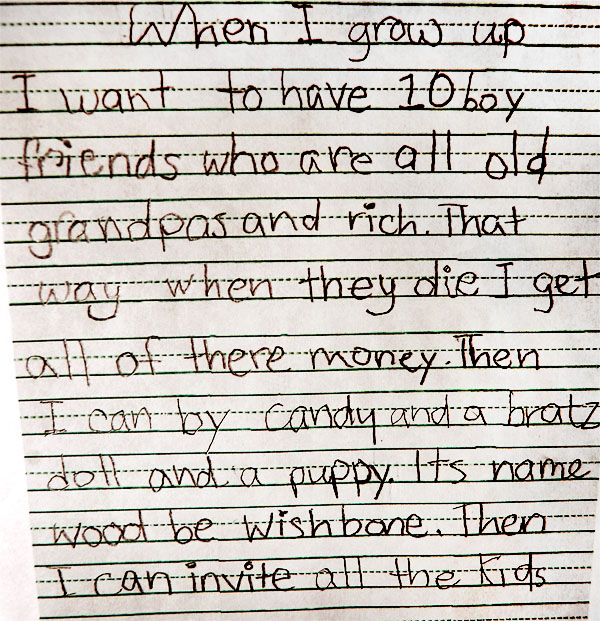 When I grow up
I want to have 10 boy
friends who are all old
grandpas and rich. That
way when they die I get
all of there money. Then
I can by candy and a bratz
doll and a puppy. Its name
wood be wishbone. Then
I can invite all the kids